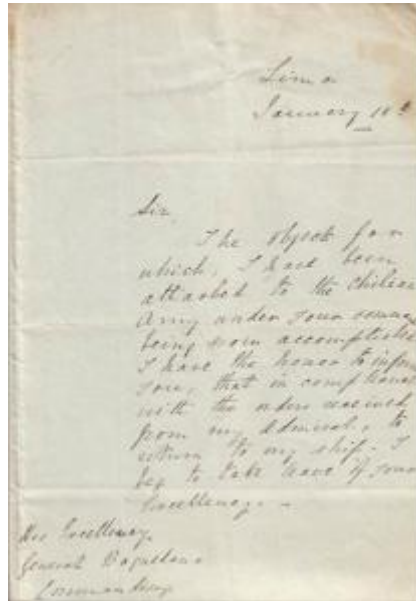 Lima
January 18
Sir,
The object for
which, I have been
attached to the Chilian
Army under your comman
being now accomplished
I have the honor to inform
you, that in compliance
with the orders received
from my Admiral, to
return to my ship. I
beg to take leave of your
Excellency.
His Excellency.
General Baquedano
Commanding